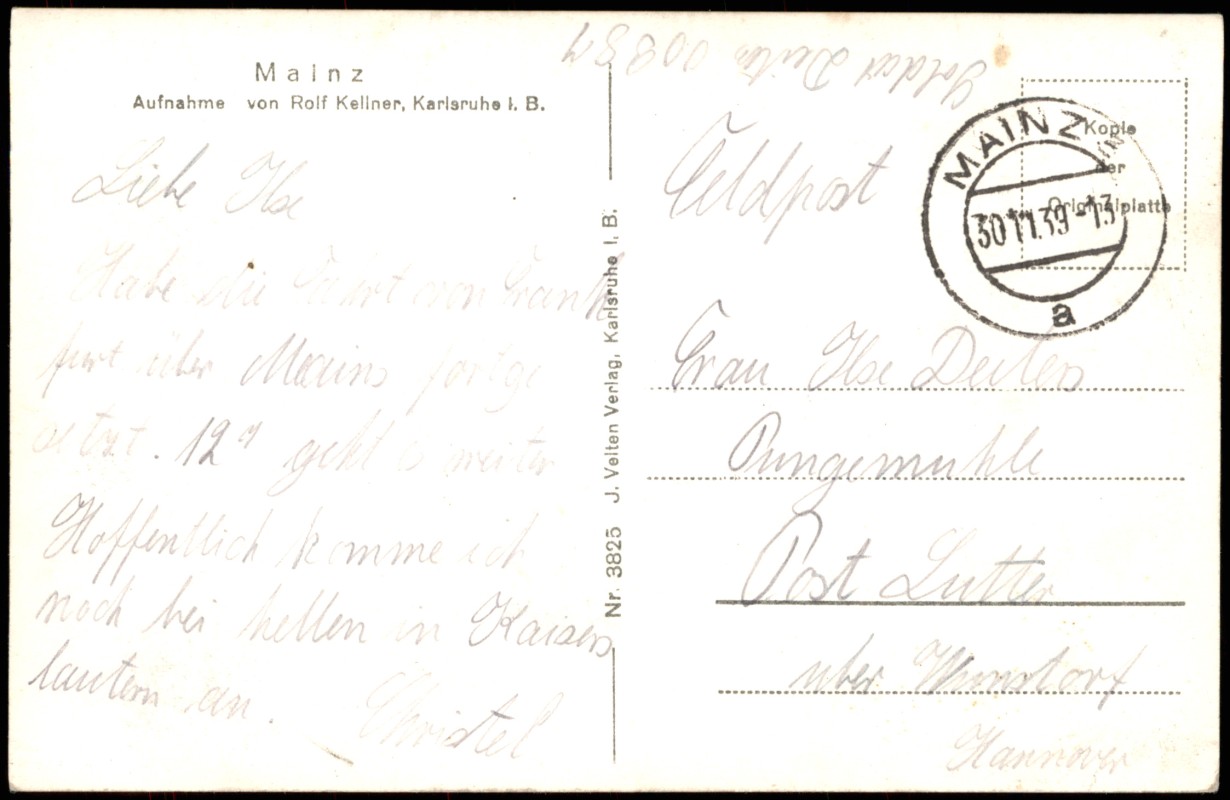 Mainz
Aufnahme von Rolf Kellner, Karlsruhe i. B.
Liebe Ilse
Habe die Fahrt von Frank
furt über Mainz fortge
setzt. 12 geht es weiter
Hoffentlich komme ich
noch bei hellen in Kaisers
lautern an.
Christel
Nr. 3825 J. Velten Verlag, Karlsruhe i. B.
Soldat 00887
Feldpost
Kopie
der
Originalplatte
MAINZ
30.11.39-13
a
Frau Ilse Deiters
Pungemühle
Post Lutter
über Wunstorf
Hannover